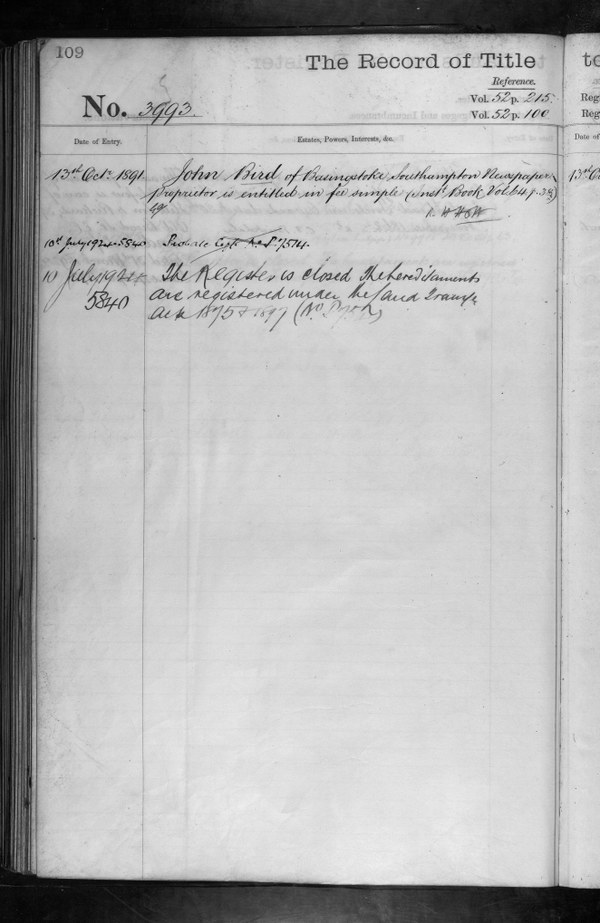 109
The Record of Title
Reference.
Vol. 52 p. 215.
Vol. 52 p. 100
No. 3993.
Date of Entry.
Estates, Powers, Interests, &c.
13th Octr 1891
John Bird of Basingstoke Southampton Newspaper
proprietor is entitled in fee simple (Inst. Book Vol. 64 p. 38)
10th July 1924 5840
10 July 1924
5840
The Register is closed The hereditaments
are registered under the Land Transfer
Acts 1875 & 1897
to
Reg
Reg
Date of
13th O